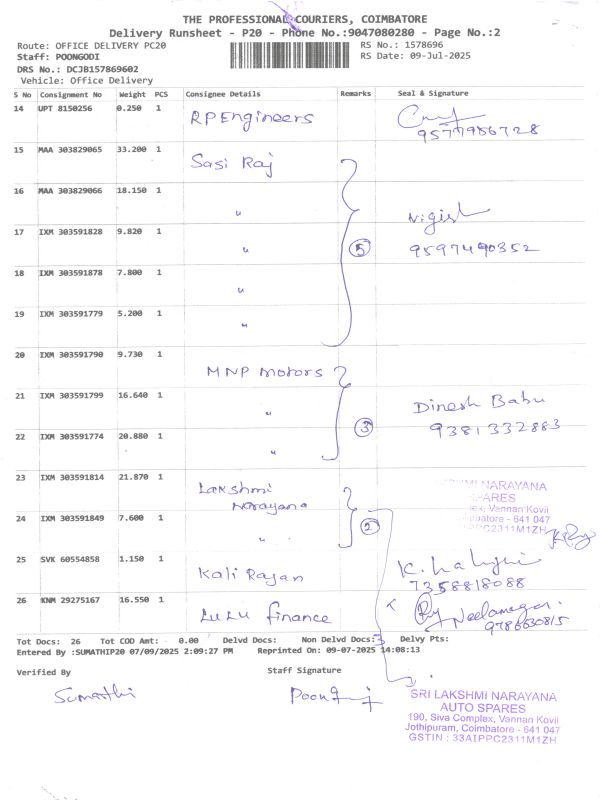 THE PROFESSIONAL COURIERS, COIMBATORE
Delivery Runsheet - P20 - Phone No.:9047080280 - Page No.:2
Route: OFFICE DELIVERY PC20 RS No.: 1578696
Staff: POONGODI RS Date: 09-Jul-2025
DRS No.: DCJB157869602
Vehicle: Office Delivery
S No Consignment No Weight PCS Consignee Details Remarks Seal & Signature
14 UPT 8150256 0.250 1 RP Engineers
15 MAA 303829065 33.200 1 Sasi Raj
16 MAA 303829066 18.150 1 "
Nigish
17 IXM 303591828 9.820 1 " 5 9597490352
18 IXM 303591878 7.800 1 "
19 IXM 303591779 5.200 1 "
20 IXM 303591790 9.730 1 MNP Motors
21 IXM 303591799 16.640 1 " Dinesh Babu
22 IXM 303591774 20.880 1 " 3 9381332883
23 IXM 303591814 21.870 1 Lakshmi Narayana
NARAYANA
SPARES
Vannan Kovil
24 IXM 303591849 7.600 1 " 2
Coimbatore - 641 047
25 SVK 60554858 1.150 1 Kali Rajan
7358818088
26 KNM 29275167 16.550 1 LuLu finance
9786630815
Tot Docs: 26 Tot COD Amt: 0.00 Delvd Docs: Non Delvd Docs: 3 Delvy Pts:
Entered By :SUMATHIP20 07/09/2025 2:09:27 PM Reprinted On: 09-07-2025 14:08:13
Verified By Staff Signature
Sumathi
SRI LAKSHMI NARAYANA
AUTO SPARES
190, Siva Complex, Vannan Kovil
Jothipuram, Coimbatore - 641 047
GSTIN : 33AIPPC2311M1ZH